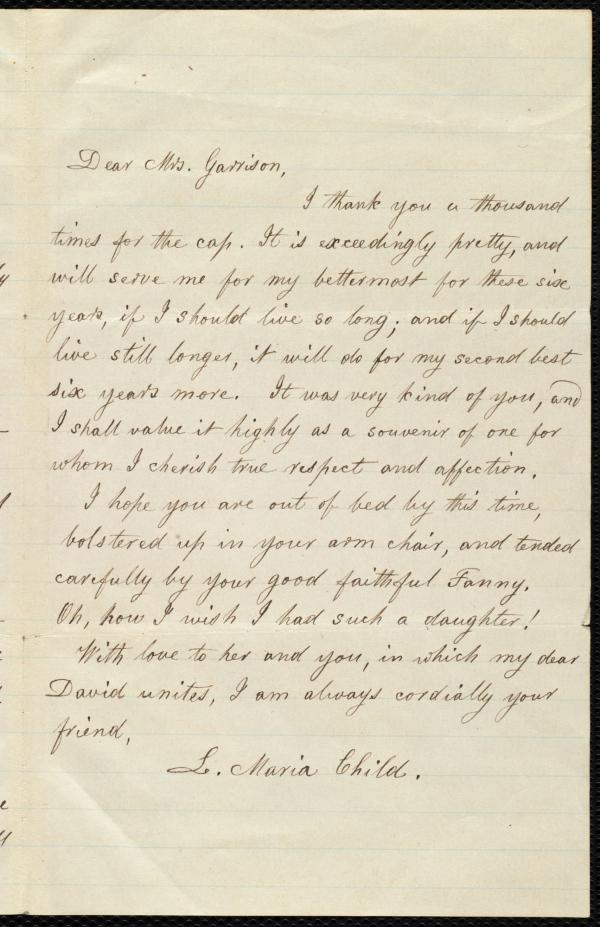 Dear Mrs. Garrison,
I thank you a thousand
times for the cap. It is exceedingly pretty, and
will serve me for my bettermost for these six
years, if I should live so long; and if I should
live still longer, it will do for my second best
six years more. It was very kind of you, and
I shall value it highly as a souvenir of one for
whom I cherish true respect and affection.
I hope you are out of bed by this time,
bolstered up in your arm chair, and tended
carefully by your good faithful Fanny.
Oh, how I wish I had such a daughter!
With love to her and you, in which my dear
David unites, I am always cordially your
friend,
L. Maria Child.